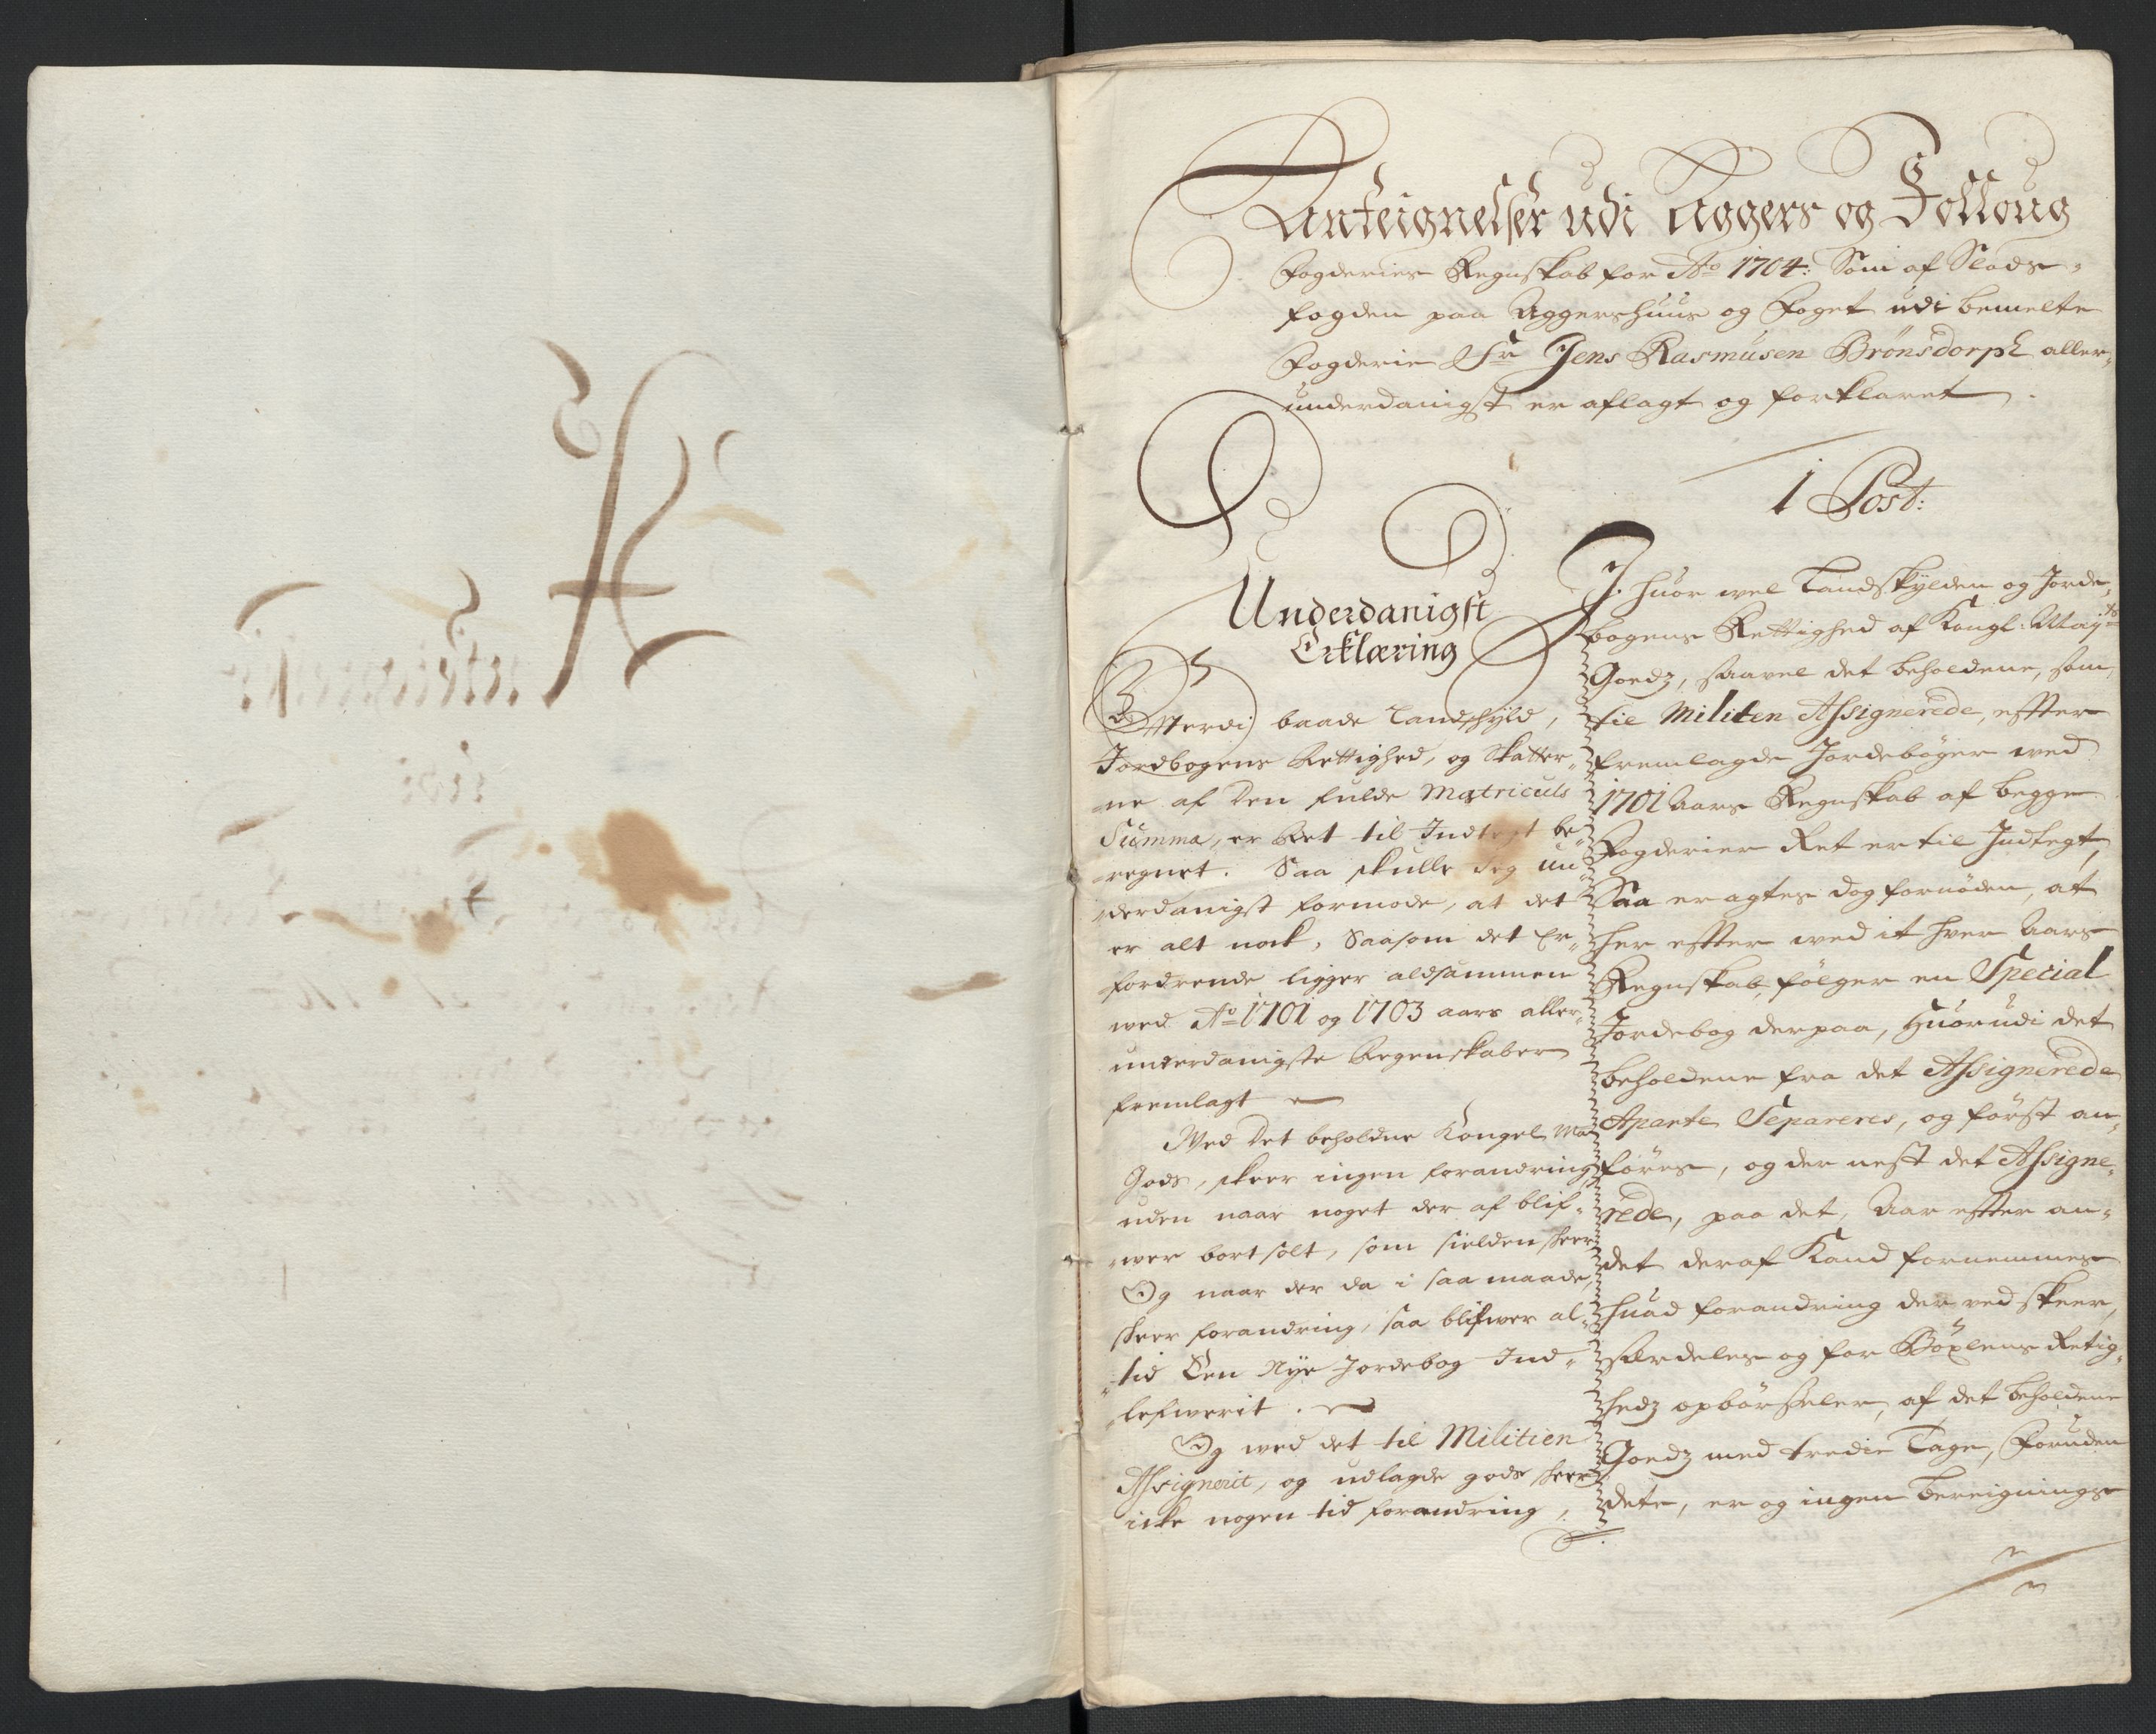 Anteignelser udi Aggers og Folloug
Fogderies Regnskab for Ao 1704: Som af Slods-
fogden paa Aggershuus og Foget udi bemelte
Fogderie Sr Jens Rasmusen Brønsdorph aller-
underdanigst er aflagt og forklaret
1 Post:
Underdanigst
Erklæring
Efterdj baade Landskyld,
Jordbogens Rettighed, og Skatter-
ne af den fulde Matriculs
Summa, er Ret til Indtegt be-
regnet. Saa skulle Jeg un-
derdanigst formode, at det
er alt nock, Saasom det Er-
fordrende ligger aldsammen
wed Ao 1701 og 1703 aars aller-
underdanigste Regenskaber
fremlagt
Wed Det beholdne Kongel Ma
Gods, skeer ingen forandring,
uden naar noget der af blif-
wer bort solt, som sielden skeer
Og naar der da i saa maade,
skeer forandring, saa blifwer al-
tid Een Nye Jordebog Ind-
lefwerit.
Og wed det til Militien
Assignerit, og udlagde gods skeer
icke nogen tid forandring,
Ihuor wel Landskylden og Jorde-
bogens Rettighed af Kongl: Mayts
Goedz, saavel det beholdene, som
til Militen Assignerede, effter
fremlagde Jordebøger wed
1701 Aars Regnskab af begge
Fogderier Ret er til Indtegt,
Saa er agtes dog fornøden, at
her effter wed it hver Aars
Regnskab, følger en Special
Jordebog derpaa, Huorudi det
beholdene fra det Assignerede
Aparte Separeres, og først an-
føres, og der nest det Assigne-
rede, paa det, Aar effter an-
det deraf Kand fornemmes
huad forandring der ved skeer,
særdeles og for Bøxlens Retig-
hedz opbørsseler, af det beholdene
Goedz med tredie Tage, Foruden
dete, er og ingen Bereignings